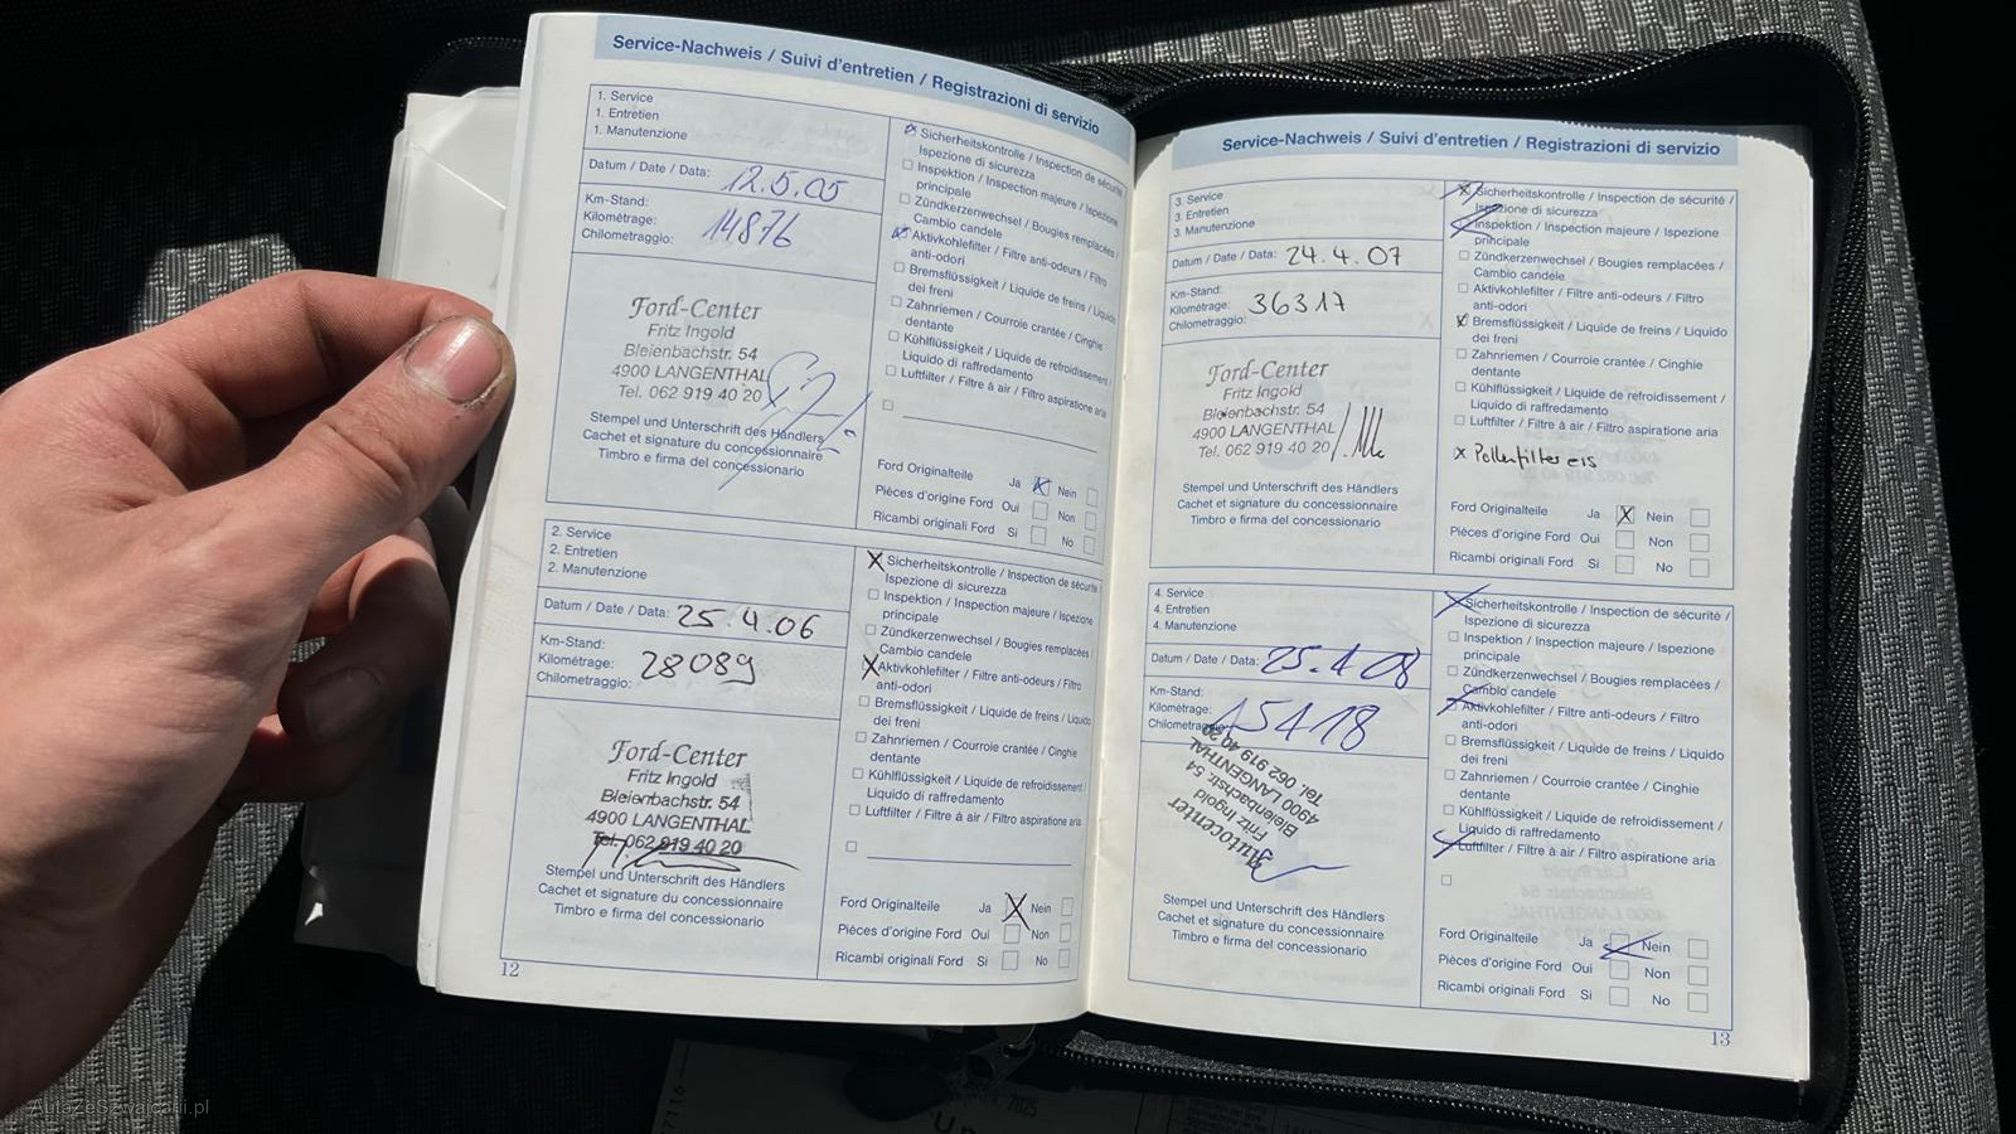 Service-Nachweis / Suivi d'entretien / Registrazioni di servizio
1. Service
1. Entretien
1. Manutenzione
Datum / Date / Data: 12.5.05
Km-Stand:
Kilométrage: 14876
Chilometraggio:
Ford-Center
Fritz Ingold
Bleienbachstr. 54
4900 LANGENTHAL
Tel. 062 919 40 20
Stempel und Unterschrift des Händlers
Cachet et signature du concessionnaire
Timbro e firma del concessionario
Sicherheitskontrolle / Inspection de sécurité
Ispezione di sicurezza
Inspektion / Inspection majeure / Ispezione
principale
Zündkerzenwechsel / Bougies remplacées /
Cambio candele
Aktivkohlefilter / Filtre anti-odeurs / Filtro
anti-odori
Bremsflüssigkeit / Liquide de freins / Liquido
dei freni
Zahnriemen / Courroie crantée / Cinghie
dentante
Kühlflüssigkeit / Liquide de refroidissement /
Liquido di raffredamento
Luftfilter / Filtre à air / Filtro aspiratione aria
Ford Originalteile Ja Nein
Pièces d'origine Ford Oui Non
Ricambi originali Ford Si No
2. Service
2. Entretien
2. Manutenzione
Datum / Date / Data: 25.4.06
Km-Stand:
Kilométrage: 28089
Chilometraggio:
Ford-Center
Fritz Ingold
Bleienbachstr. 54
4900 LANGENTHAL
Tel. 062 919 40 20
Stempel und Unterschrift des Händlers
Cachet et signature du concessionnaire
Timbro e firma del concessionario
Sicherheitskontrolle / Inspection de sécurité
Ispezione di sicurezza
Inspektion / Inspection majeure / Ispezione
principale
Zündkerzenwechsel / Bougies remplacées /
Cambio candele
Aktivkohlefilter / Filtre anti-odeurs / Filtro
anti-odori
Bremsflüssigkeit / Liquide de freins / Liquido
dei freni
Zahnriemen / Courroie crantée / Cinghie
dentante
Kühlflüssigkeit / Liquide de refroidissement /
Liquido di raffredamento
Luftfilter / Filtre à air / Filtro aspiratione aria
Ford Originalteile Ja Nein
Pièces d'origine Ford Oui Non
Ricambi originali Ford Si No
12
Service-Nachweis / Suivi d'entretien / Registrazioni di servizio
3. Service
3. Entretien
3. Manutenzione
Datum / Date / Data: 24.4.07
Km-Stand:
Kilométrage: 36317
Chilometraggio:
Ford-Center
Fritz Ingold
Bleienbachstr. 54
4900 LANGENTHAL
Tel. 062 919 40 20
Stempel und Unterschrift des Händlers
Cachet et signature du concessionnaire
Timbro e firma del concessionario
Sicherheitskontrolle / Inspection de sécurité /
Ispezione di sicurezza
Inspektion / Inspection majeure / Ispezione
principale
Zündkerzenwechsel / Bougies remplacées /
Cambio candele
Aktivkohlefilter / Filtre anti-odeurs / Filtro
anti-odori
Bremsflüssigkeit / Liquide de freins / Liquido
dei freni
Zahnriemen / Courroie crantée / Cinghie
dentante
Kühlflüssigkeit / Liquide de refroidissement /
Liquido di raffredamento
Luftfilter / Filtre à air / Filtro aspiratione aria
x Pollenfilter
Ford Originalteile Ja Nein
Pièces d'origine Ford Oui Non
Ricambi originali Ford Si No
4. Service
4. Entretien
4. Manutenzione
Datum / Date / Data:
Km-Stand:
Kilométrage:
Chilometraggio:
Autocenter
Fritz Ingold
Bleienbachstr. 54
4900 LANGENTHAL
Tel. 062 919 40 20
Stempel und Unterschrift des Händlers
Cachet et signature du concessionnaire
Timbro e firma del concessionario
Sicherheitskontrolle / Inspection de sécurité /
Ispezione di sicurezza
Inspektion / Inspection majeure / Ispezione
principale
Zündkerzenwechsel / Bougies remplacées /
Cambio candele
Aktivkohlefilter / Filtre anti-odeurs / Filtro
anti-odori
Bremsflüssigkeit / Liquide de freins / Liquido
dei freni
Zahnriemen / Courroie crantée / Cinghie
dentante
Kühlflüssigkeit / Liquide de refroidissement /
Liquido di raffredamento
Luftfilter / Filtre à air / Filtro aspiratione aria
Ford Originalteile Ja Nein
Pièces d'origine Ford Oui Non
Ricambi originali Ford Si No
13
2025
AutaZeSzwajcarii.pl